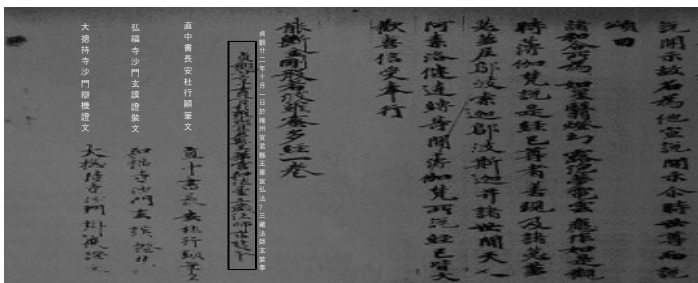 說開示故名為他宣說開示尒時世尊而說
頌曰
諸和合所為如星翳燈幻露泡夢電雲應作如是觀
時薄伽梵說是經已尊者善現及諸苾芻
苾芻尼鄔波索迦鄔波斯迦并諸世間天人
阿素洛健達縛等聞薄伽梵所說經已皆大
歡喜信受奉行
能斷金剛般若波羅蜜多經一卷
貞觀廿二年十月一日於雍州宜君縣玉華宮弘法?三藏法師玄奘奉
直中書長安杜行顗筆文
直中書長安杜行顗筆
弘福寺沙門玄謨證裝文
弘福寺沙門玄謨證
大摠持寺沙門辯機證文
大摠持寺沙門辯機證文